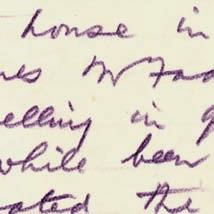 house in
Mr
elling in
while been
ated the